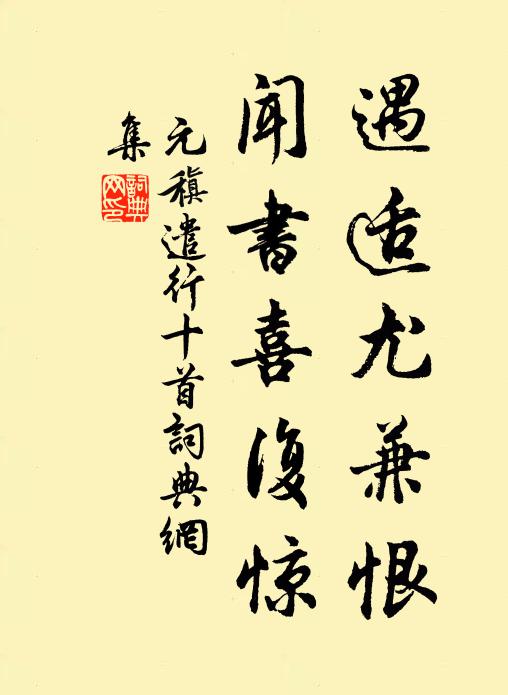 遇适尤兼恨
闻书喜復惊
元稹遣行十首詞典網
集
詞典
网印